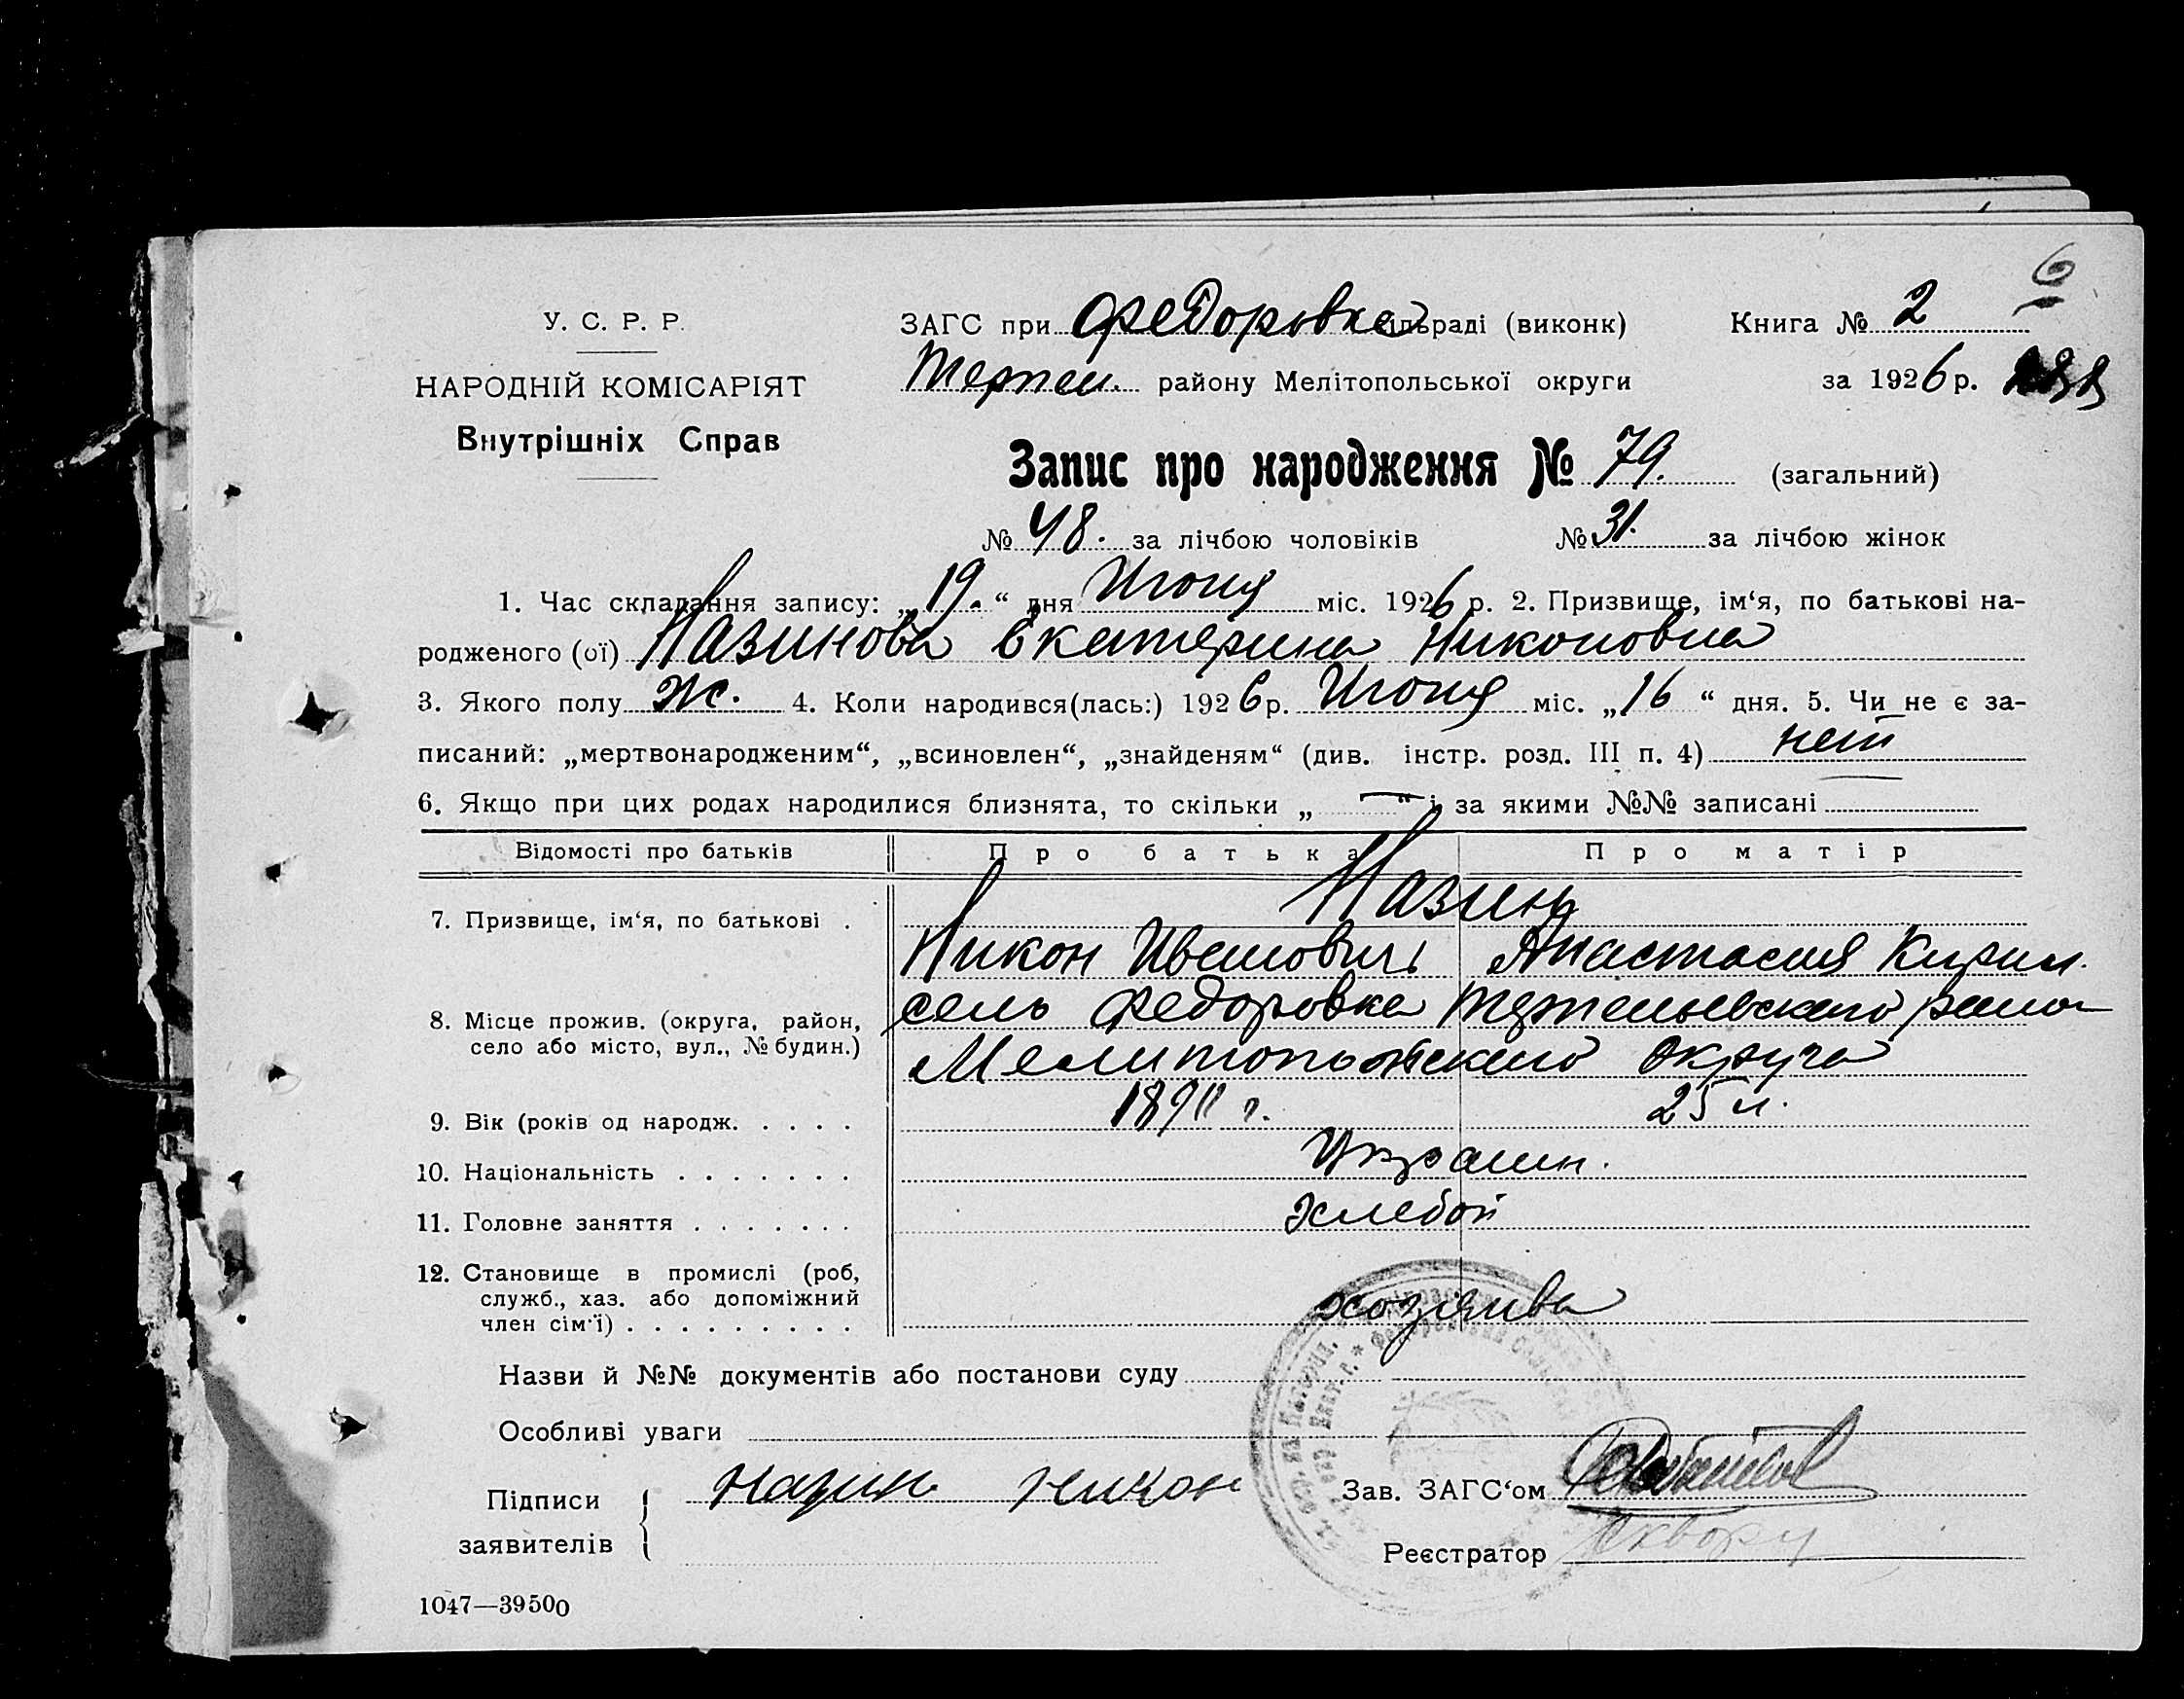 6
У. С. Р. Р.
НАРОДНІЙ КОМІСАРІЯТ
Внутрішніх Справ
ЗАГС при Федоровке сільраді (виконк) Книга № 2
Терпен. району Мелітопольської округи за 1926 р.
Запис про народження № 79. (загальний)
№ 48. за лічбою чоловіків № 31. за лічбою жінок
1. Час складання запису: „19.“ дня Июня міс. 1926 р. 2. Призвище, ім‘я, по батькові на-
родженого (ої) Назинова Екатерина Никоновна
3. Якого полу ж. 4. Коли народився(лась:) 1926 р. Июня міс. „16“ дня. 5. Чи не є за-
писаний: „мертвонародженим“, „всиновлен“, „знайденям“ (див. інстр. розд. III п. 4) нет
6. Якщо при цих родах народилися близнята, то скільки „ — “ і за якими №№ записані
Відомості про батьків Про батька Про матір
7. Призвище, ім‘я, по батькові . Назин
Никон Иванович Анастасия Кирил.
8. Місце прожив. (округа, район, село або місто, вул., № будин.) село Федоровка Терпеньевского
Мелитопольского округа
9. Вік (років од народж. . . . . г. 25 л.
10. Національність . . . . . . . Украин.
11. Головне заняття . . . . . . . Хлебоп
12. Становище в промислі (роб,
служб., хаз. або допоміжний
член сім‘ї) . . . . . . . . . хозяива
Назви й №№ документів або постанови суду
Особливі уваги
Підписи
заявителів
Назин Никон
Зав. ЗАГС‘ом
Реєстратор
1047—39500